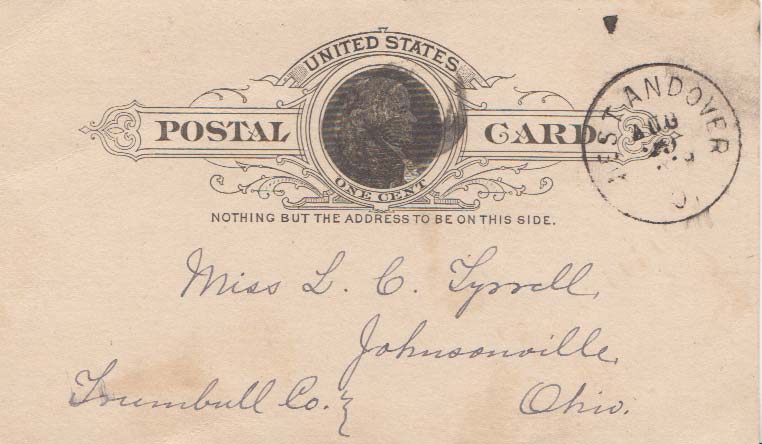 UNITED STATES
POSTAL CARD
ONE CENT
NOTHING BUT THE ADDRESS TO BE ON THIS SIDE.
WEST ANDOVER
AUG
29
O.
Miss L. C. Tyrrell,
Johnsonville,
Trumbull Co. Ohio.